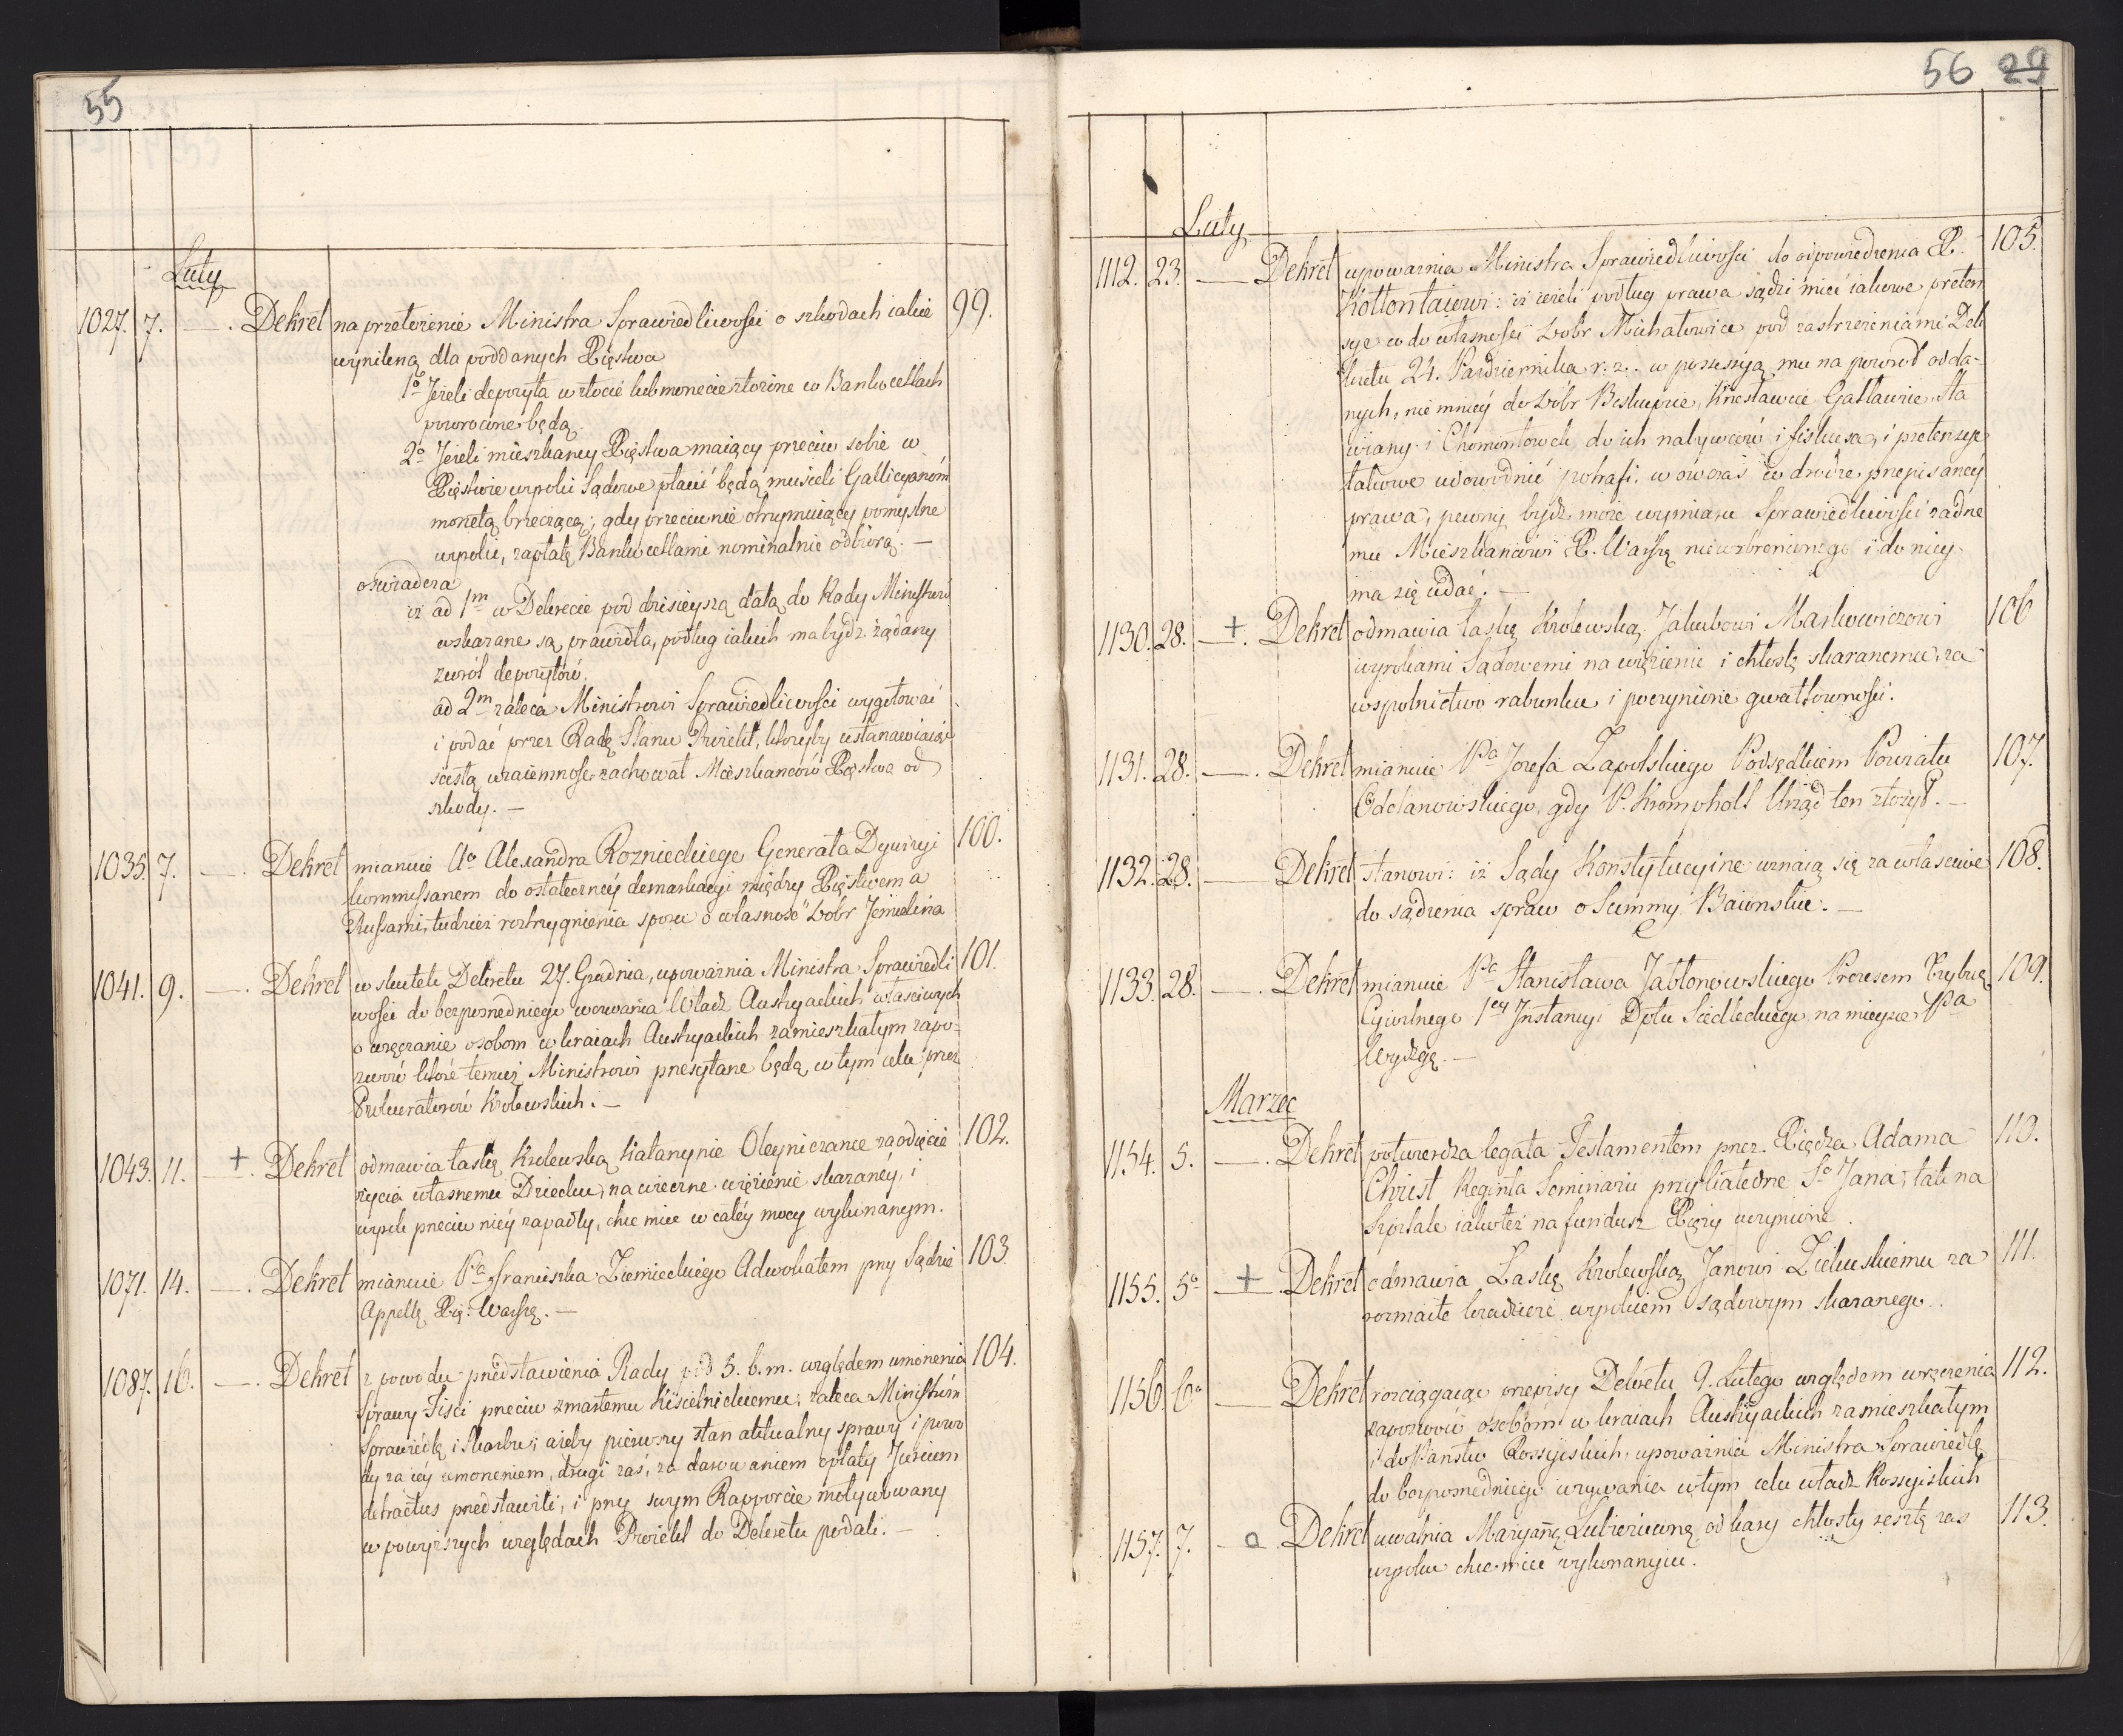 55
Luty
1027. 7. —. Dekret na przełożenie Ministra Sprawiedliwości o szkodach iakie 99.
wynikną dla poddanych Xięstwa
1o Jeżeli depozyta w złocie lub monecie złożone w Bankocetlach
powrócone będą.
2o Jeżeli mieszkańcy Xięstwa maiący przeciw sobie w
Xięstwie wyroki Sądowe płacić będą musieli Gallicyanóm
monetą brzęczącą; gdy przeciwnie otrzymuiący pomyślne
wyroki, zapłatę Bankocetlami nominalnie odbiorą. —
oswiadcza
iż ad 1m w Dekrecie pod dzisieyszą datą do Rady Ministrów
wskazane są prawidła, podług iakich ma bydź żądany
zwrót depozytów.
ad 2m zaleca Ministrowi Sprawiedliwości wygotować
i podać przez Radę Stanu Proiekt, któryby ustanawiaiąc
scisłą wzaiemność zachował Mieszkańców Xięstwa od
szkody. —
1035. 7. —. Dekret mianuie Ua Alexandra Roznieckiego Generała Dywizyi 100.
kommissarzem do ostateczney demarkacyi między Xięstwem a
Russami, tudzież roztrzygnienia sporu o własność Dóbr Jemielina
1041. 9. —. Dekret w skutek Dekretu 27. Grudnia, upoważnia Ministra Sprawiedli 101.
wości do bezposredniego wzywania Władz Austryackich właściwych
o wręczanie osobom w kraiach Austryackich zamieszkałym zapo-
zwów które temuż Ministrowi przesyłane będą w tym celu przez
Prokuratorów Królewskich. —
1043. 11. —+. Dekret odmawia łaskę Królewską Katarzynie Oleyniczance za odięcie 102.
życia własnemu Dziecku, na wieczne więzienie skazaney, i
wyrok przeciw niey zapadły, chce mieć w całey mocy wykonanym.
1071. 14. —. Dekret mianuie Pa Franciszka Ziemieckiego Adwokatem przy Sądzie 103.
Appellą Xię: Warszą. —
1087. 16. —. Dekret z powodu przedstawienia Rady pod 5. b. m. względem umorzenia 104.
Sprawy Fisci przeciw zmarłemu Kisielnickiemu; zaleca Ministróm
Sprawiedlą i Skarbu; ażeby pierwszy stan aktualny sprawy i powo
dy za iey umorzeniem, drugi zaś, za darowaniem opłaty Jurium
detractus przedstawili, i przy swym Rapporcie motywowany
w powyższych względach Proiekt do Dekretu podali. —
56 29
Luty
1112. 23. —. Dekret upoważnia Ministra Sprawiedliwości do odpowiedzenia X. 105.
Kołłontaiowi: iż ieżeli podług prawa sądzi mieć iakowe preten
sye co do własności Dóbr Michałowice pod zastrzeżeniami Dek
retu 24. Października r: z. w possessyą mu na powrót odda-
nych, nie mniey do Dóbr Biskupice, Krzesławice Gałławice, Sta
wiany i Chomentowek, do ich nabywców i fiskusa, i pretensye
takowe udowodnić potrafi: w owczas w drodze przepisaney
prawa, pewny bydź może wymiaru Sprawiedliwości żadne
mu Mieszkańcowi X. Warszą niewzbronionego i do niey
ma się udać. —
1130. 28. —+. Dekret odmawia łaskę Królewską Jakubowi Markowiczowi 106
wyrokami Sądowemi na więzienie i chłostę skaranemu, za
wspolnictwo rabunku i poczynione gwałtowności.
1131. 28. —. Dekret mianuie Pa Jozefa Zapolskiego Podsędkiem Powiatu 107.
Odolanowskiego, gdy P. Kromphols Urząd ten złożył. —
1132. 28. —. Dekret stanowi: iż Sądy Konstytucyine uznaią się za własciwe 108.
do sądzenia spraw o Summy Baiońskie. —
1133. 28. —. Dekret mianuie Pa Stanisława Jabłonowskiego Prezesem Trybuą 109.
Cywilnego 1ey Instancyi Dptu Siedleckiego na mieysce Pa
Wydżgę. —
Marzec
1154. 5. —. Dekret potwierdza legata Testamentem przez Xiędza Adama 110.
Christ Regenta Seminarii przy katedrze So Jana, tak na
Szpitale iakoteż na fundusz Xięży uczynione.
1155. 5o —+. Dekret odmawia Łaskę Królewską Janowi Zielińskiemu za 111.
rozmaite kradzieże wyrokiem sądowym skaranego.
1156. 6o —. Dekret rozciągaiąc przepisy Dekretu 9. Lutego względem wręczenia 112.
zapozwów osobóm w kraiach Austryackich zamieszkałym
i do Państw Rossyiskich, upoważnia Ministra Sprawiedlą
do bezposredniego wzywania w tym celu władz Rossyiskich
1157. 7. — o. Dekret uwalnia Maryannę od kary chłosty resztę zas 113.
wyroku chce mieć wykonanym.